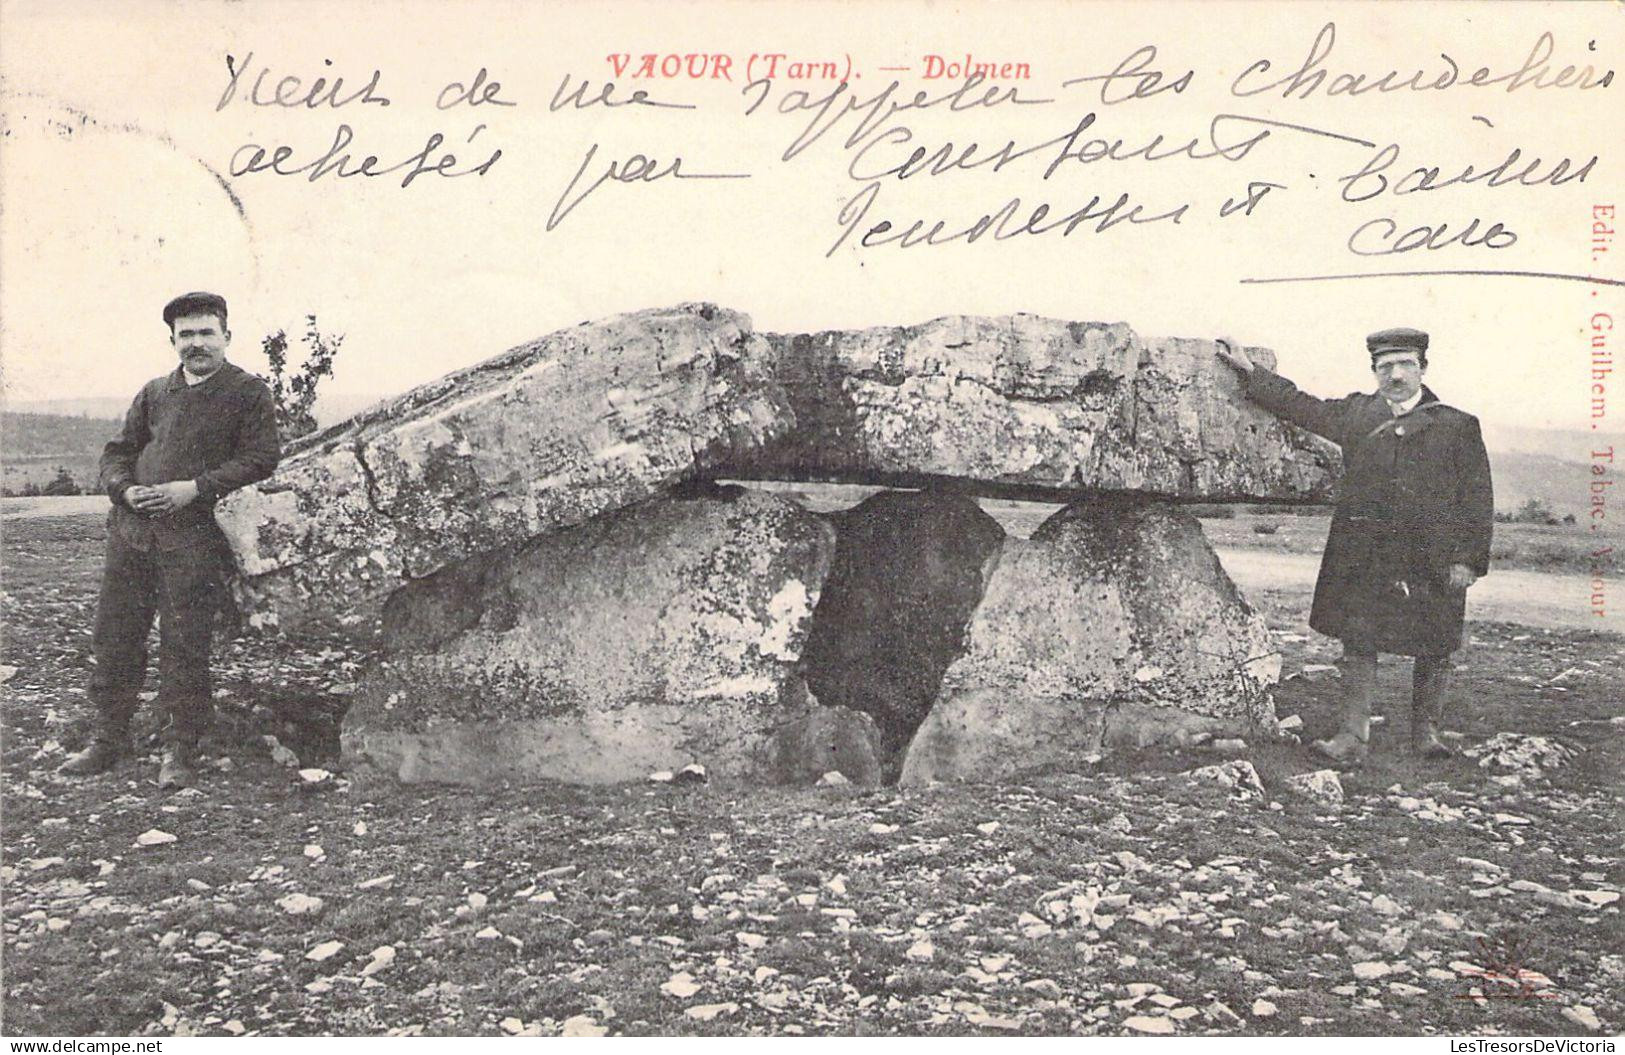 VAOUR (Tarn). — Dolmen
Viens de me rappeler les chandeliers
achetés par Constant
Tendresses et baisers
Caro
Edit. . Guilhem. Tabac. Vaour
LesTresorsDeVictoria
delcampe.net